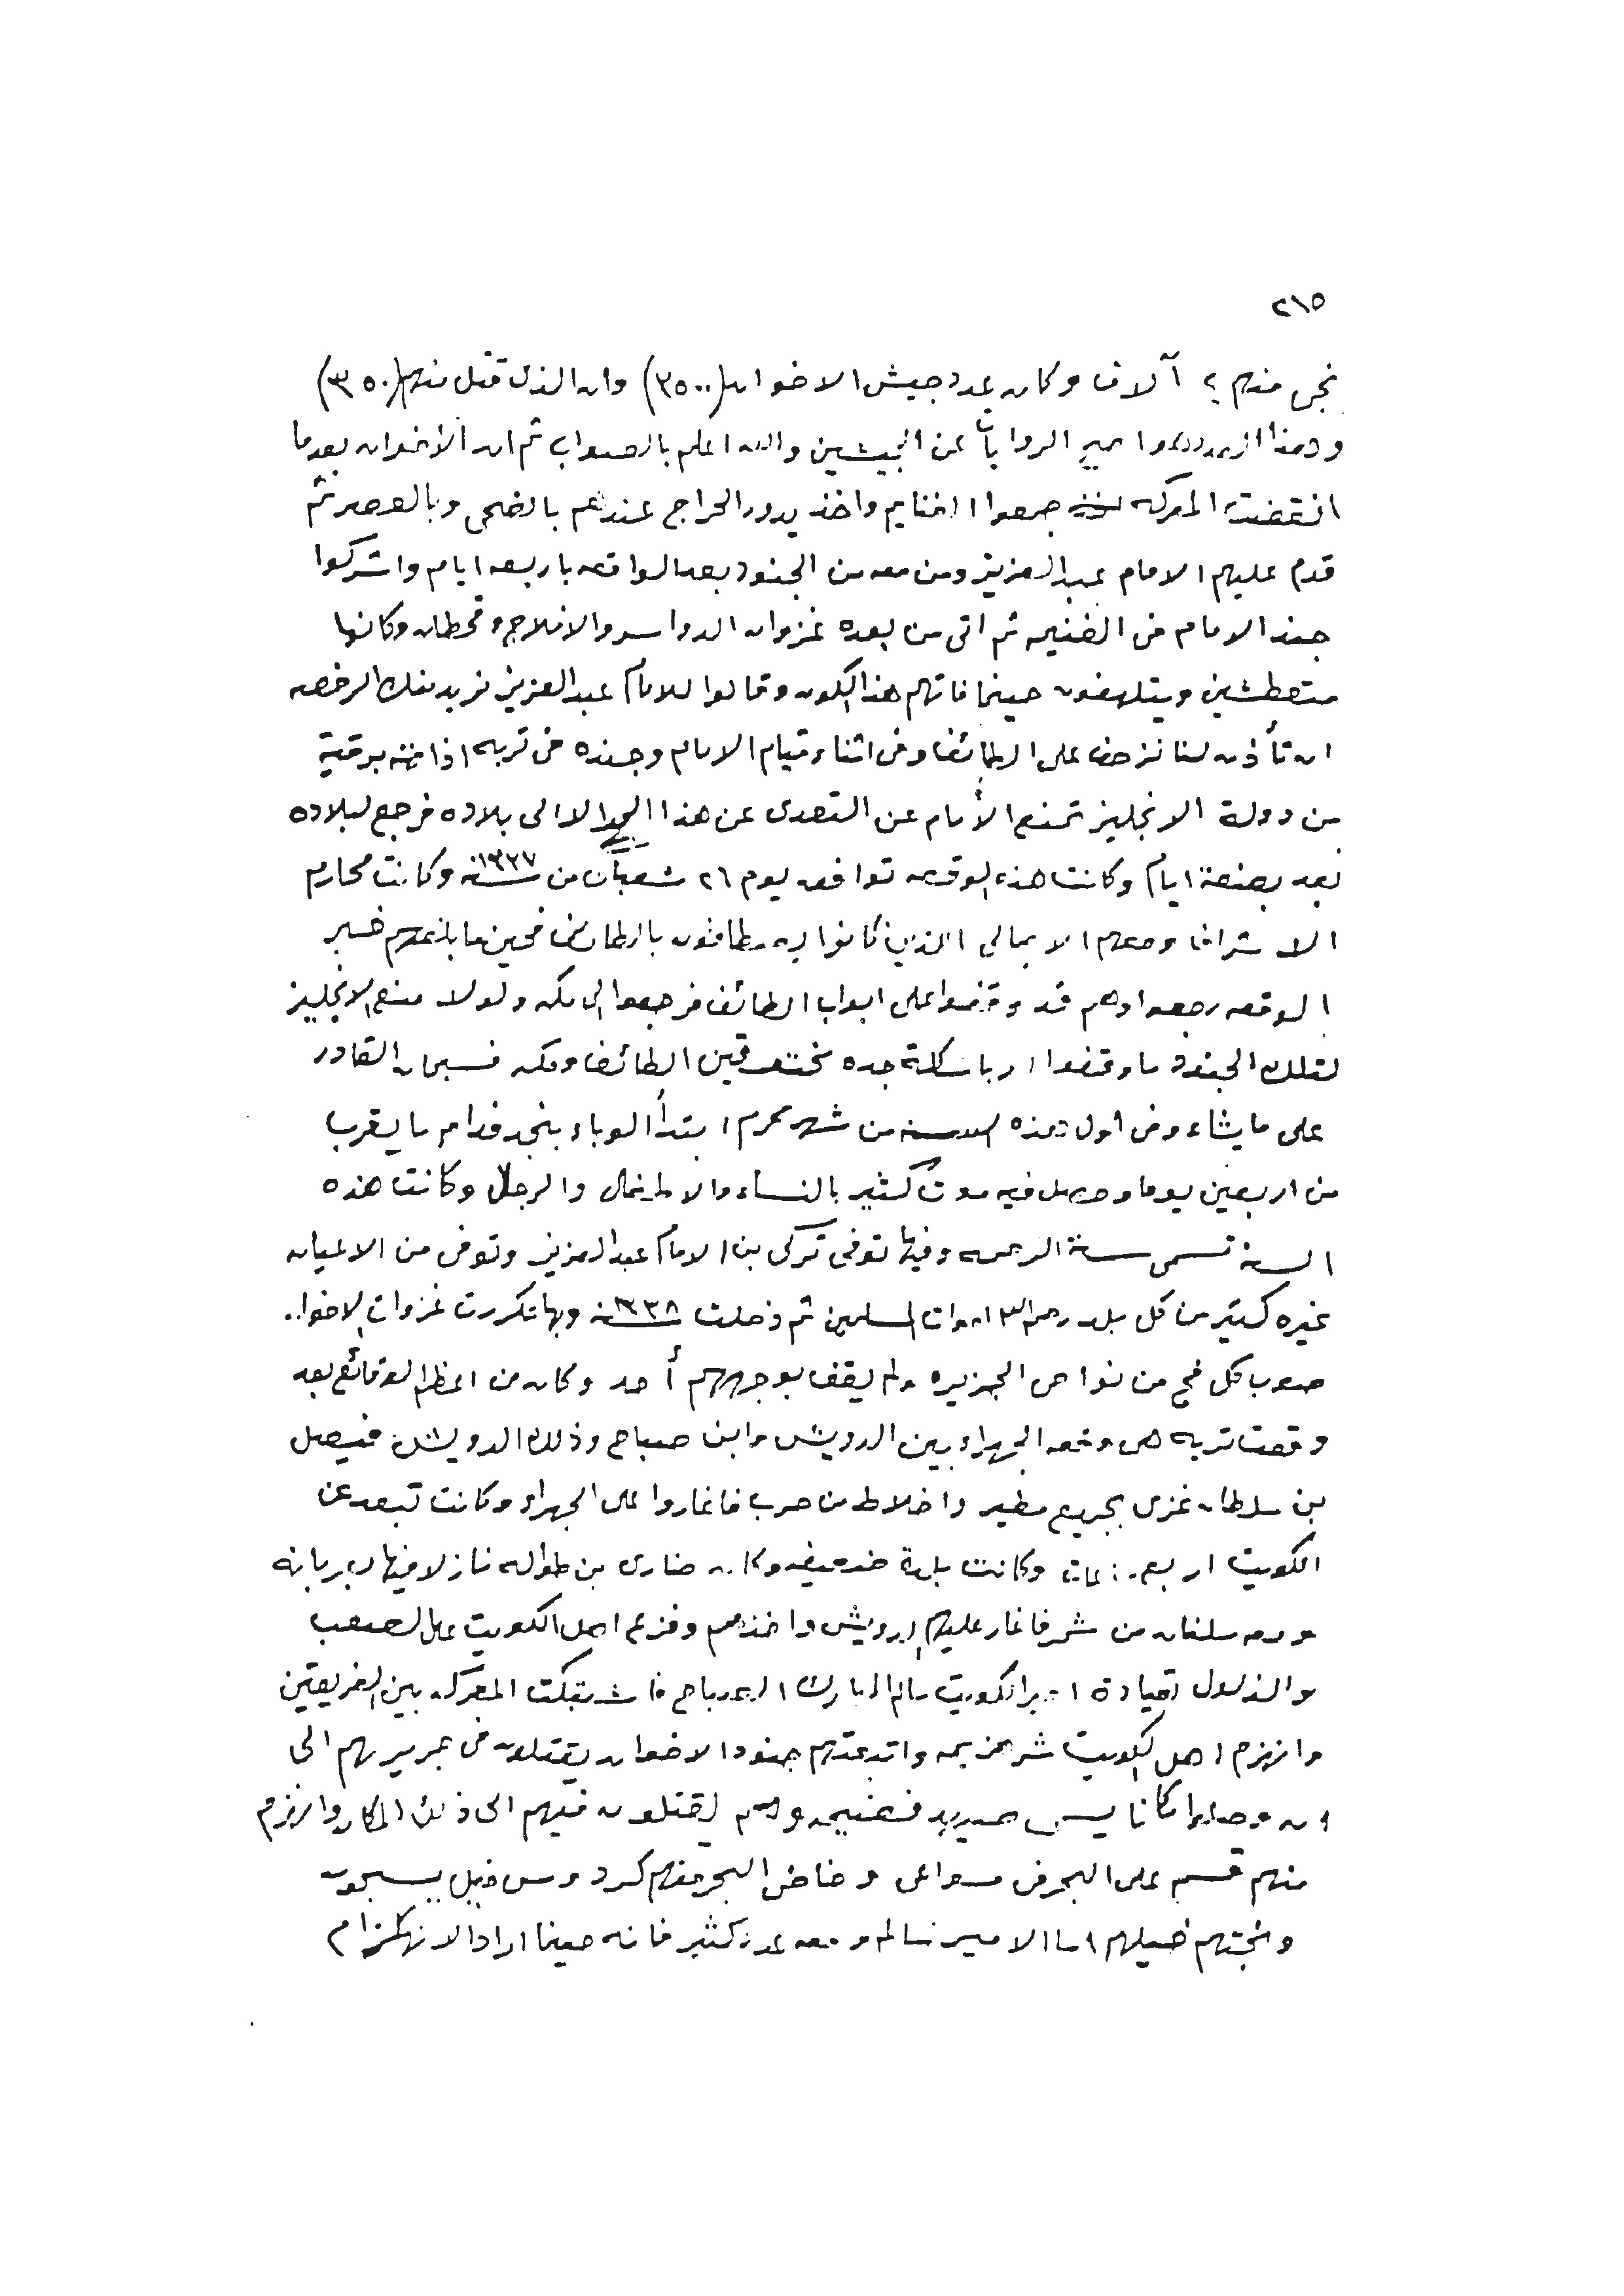 ٢١٥
نجى منهم ٢ آلاف وكان عدد جيش الاخوان (٣٥٠٠) وان الذي قتل منهم (٣٥٠)
الروايات عن الجيشين والله اعلم بالصواب ثم ان الأخوان بعدما
انقضت المعركه جمعوا الغنايم واخذ يدور الحراج عندهم بالضحى وبالعصر ثم
قدم عليهم الامام عبد العزيز ومن معه من الجنود بعد الواقعه باربعه ايام واشركوا
جند الامام في الغنيمه ثم اتى من بعده غزوان الدواسر والافلاج وقحطان وكانوا
متعطشين ويتلهفون حينما فاتهم هذا الكون وقالوا للامام عبد العزيز نريد منك الرخصه
ان تأذن لنا نزحف على الطائف وفي اثناء قيام الامام وجنده في تربه اذا برقية
من دولة الانجليز تمنع الأمام عن التعدي عن هذا الحد الا الى بلاده فرجع لبلاده
بعد بضعة ايام وكانت هذه الوقعه توافق يوم ٢٦ شعبان من سنة ١٣٣٧ وكانت محارم
الاشراف ومعهم الاهالي الذين كانوا يصطافون بالطائف فحين ما بلغهم خبر
الوقعه رجعوا وهم قد وقفوا على ابواب الطائف فرجعوا الى مكه ولولا منع الانجليز
لتلك الجنود ما وقفوا الا باسكلة جده مخترقين الطائف ومكه فسبحان القادر
على ما يشاء وفي اول هذه السنه من شهر محرم ابتدأ الوباء بنجد فدام ما يقرب
من اربعين يوما وحصل فيه موت كثير بالنساء والاطفال والرجال وكانت هذه
السنه تسمى سنة الرحمه وفيها توفى تركي بن الامام عبد العزيز وتوفى من الاعيان
غيره كثير من كل بلد رحم الله اموات المسلمين ثم دخلت سنة ١٣٣٨ وبها تكررت غزوات الاخوان
صوب كل فج من نواحي الجزيره ولم يقف بوجههم أحد وكان من اعظم الوقائع بعد
وقعت تربه هي وقعه الجهراء بين الدويش وابن صباح وذلك الدويش فيصل
بن سلطان غزى بجميع مطير واخلاط من حرب فاغاروا على الجهراء وكانت تبعد عن
الكويت اربع ساعات وكانت بلدة ضعيفه وكان ضاري بن طواله نازلا فيها بعربانه
ومعه سلفان من شمر فاغار عليهم الدويش واخذهم وفزع اهل الكويت على الصعب
والذلول بقيادة امير الكويت سالم المبارك الصباح فاشتبكت المعركه بين الفريقين
وانهزم اهل الكويت شر هزيمه واتبعتهم جنود الاخوان يقتلون في مديرهم الى
ان وصلوا مكانا يسمى وهم يقتلون فيهم الى ذلك المكان وانهزم
منهم قسم على البحر في سواعي وخاض البحر منهم كرد وس خيل يسبحون
ونجتهم خيلهم اما الامير سالم ومعه عدد كثير فانه حينما اراد الانهزام